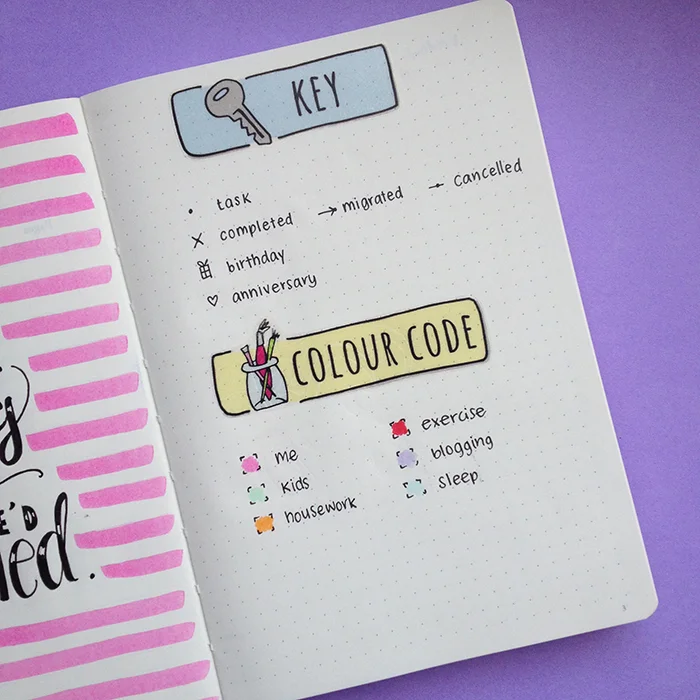 KEY
• task
× completed → migrated → cancelled
birthday
♡ anniversary
COLOUR CODE
me exercise
kids blogging
housework sleep
E'D
ed.